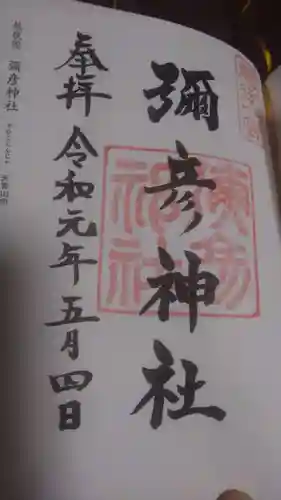 彌彦神社
奉拝 令和元年五月四日
彌彦神社
彌彦神社